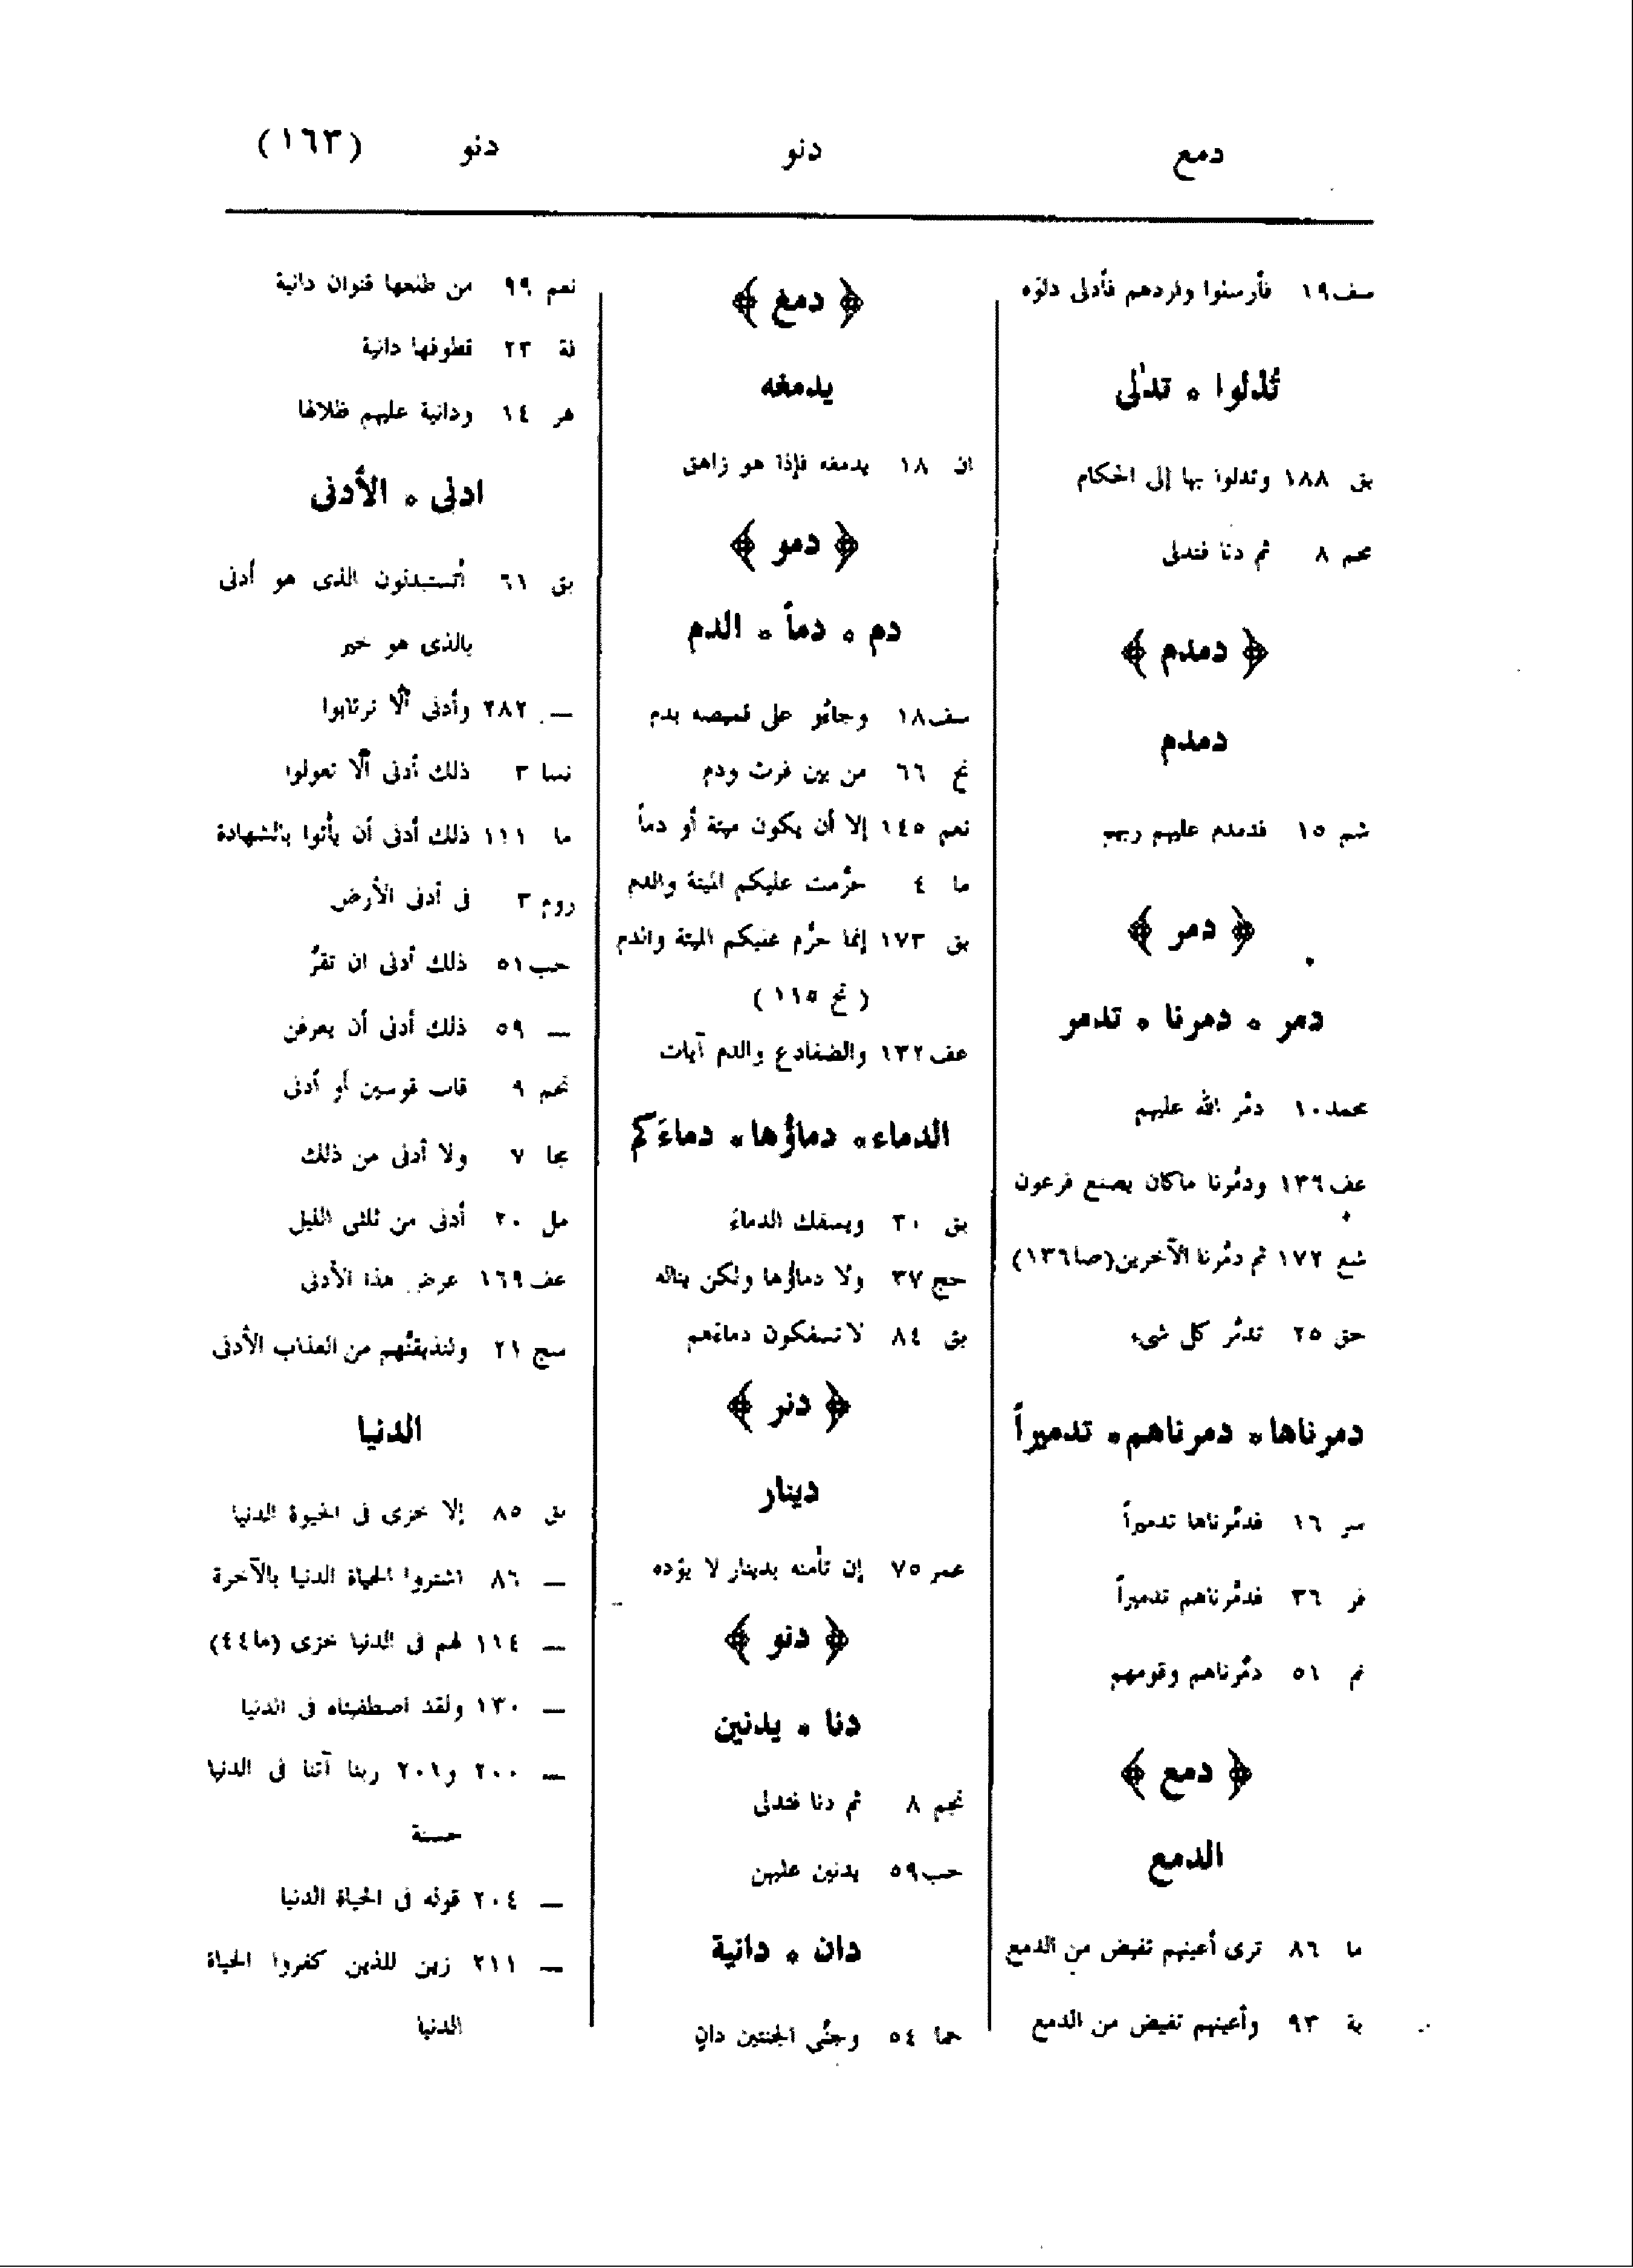 دمع دنو دنو (١٦٣)
سف ١٩ فأرسلوا واردهم فأدلى دلوه
تُدْلوا * تدلى
بق ١٨٨ وتدلوا بها إلى الحكام
نجم ٨ ثم دنا فتدلى
﴿ دمدم ﴾
دمدم
شم ١٥ فدمدم عليهم ربهم
﴿ دمر ﴾
دمر * دمرنا * تدمر
محمد ١٠ دمّر الله عليهم
عف ١٣٦ ودمّرنا ماكان يصنع فرعون
شع ١٧٢ ثم دمّرنا الآخرين (صا ١٣٦)
حق ٢٥ تدمّر كل شىء
دمرناها * دمرناهم * تدميراً
سر ١٦ فدمّرناها تدميراً
فر ٣٦ فدمّرناهم تدميراً
نم ٥١ دمّرناهم وقومهم
﴿ دمع ﴾
الدمع
ما ٨٦ ترى أعينهم تفيض من الدمع
بة ٩٣ وأعينهم تفيض من الدمع
﴿ دمغ ﴾
يدمغه
ان ١٨ يدمغه فإذا هو زاهق
﴿ دمو ﴾
دم * دماً * الدم
سف ١٨ وجاءُو على قميصه بدم
نح ٦٦ من بين فرث ودم
نعم ١٤٥ إلا أن يكون ميتة أو دماً
ما ٤ حرّمت عليكم الميتة والدم
بق ١٧٣ إنما حرّم عليكم الميتة والدم
( نح ١١٥ )
عف ١٣٢ والضفادع والدم آيات
الدماء * دماؤها * دماءَكم
بق ٣٠ ويسفك الدماءَ
حج ٣٧ ولا دماؤها ولكن يناله
بق ٨٤ لا تسفكون دماءَهم
﴿ دنر ﴾
دينار
عمر ٧٥ إن تأمنه بدينار لا يؤده
﴿ دنو ﴾
دنا * يدنين
نجم ٨ ثم دنا فتدلى
حب ٥٩ يدنين عليهن
دان * دانية
حما ٥٤ وجنَى الجنتين دانٍ
نعم ٩٩ من طلعها قنوان دانية
قة ٢٣ قطوفها دانية
هر ١٤ ودانية عليهم ظلالها
ادنى * الأدنى
بق ٦١ أتستبدلون الذى هو أدنى
بالذى هو خير
— ٢٨٢ وأدنى ألّا ترتابوا
نسا ٣ ذلك أدنى ألّا تعولوا
ما ١١١ ذلك أدنى أن يأتوا بالشهادة
روم ٣ فى أدنى الأرض
حب ٥١ ذلك أدنى ان تقرّ
— ٥٩ ذلك أدنى أن يعرفن
نجم ٩ قاب قوسين أو أدنى
مجا ٧ ولا أدنى من ذلك
مل ٢٠ أدنى من ثلثى الليل
عف ١٦٩ عرض هذا الأدنى
سج ٢١ ولنذيقنّهم من العذاب الأدنى
الدنيا
بق ٨٥ إلا خزى فى الحيوة الدنيا
— ٨٦ اشتروا الحياة الدنيا بالآخرة
— ١١٤ لهم فى الدنيا خزى (ما ٤٤)
— ١٣٠ ولقد اصطفيناه فى الدنيا
— ٢٠٠ و٢٠١ ربنا آتنا فى الدنيا
حسنة
— ٢٠٤ قوله فى الحياة الدنيا
— ٢١١ زين للذين كفروا الحياة
الدنيا